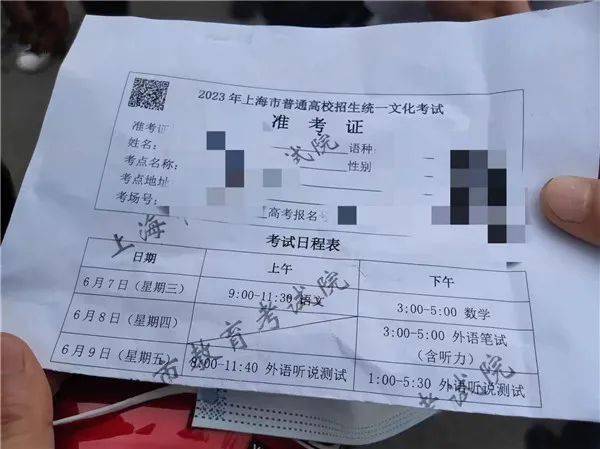 2023年上海市普通高校招生统一文化考试
准考证
准考证
姓名:
语种
考点名称:
性别
考点地址:
考场号:
高考报名号
考试日程表
日期 上午 下午
6月7日(星期三) 9:00-11:30 语文 3:00-5:00 数学
6月8日(星期四) 3:00-5:00 外语笔试
(含听力)
6月9日(星期五) 8:00-11:40 外语听说测试 1:00-5:30 外语听说测试
上海
市教育考试院
试院
考试院